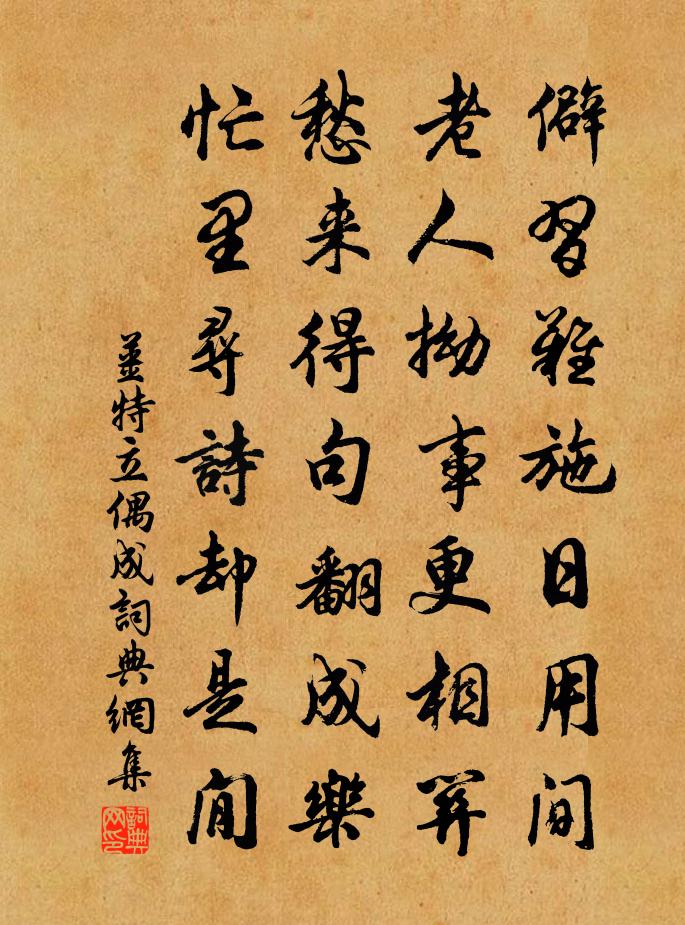 僻習難施日用間
老人拗事更相關
愁来得句翻成樂
忙里尋詩却是閒
薑特立偶成詞典網集
詞典网印